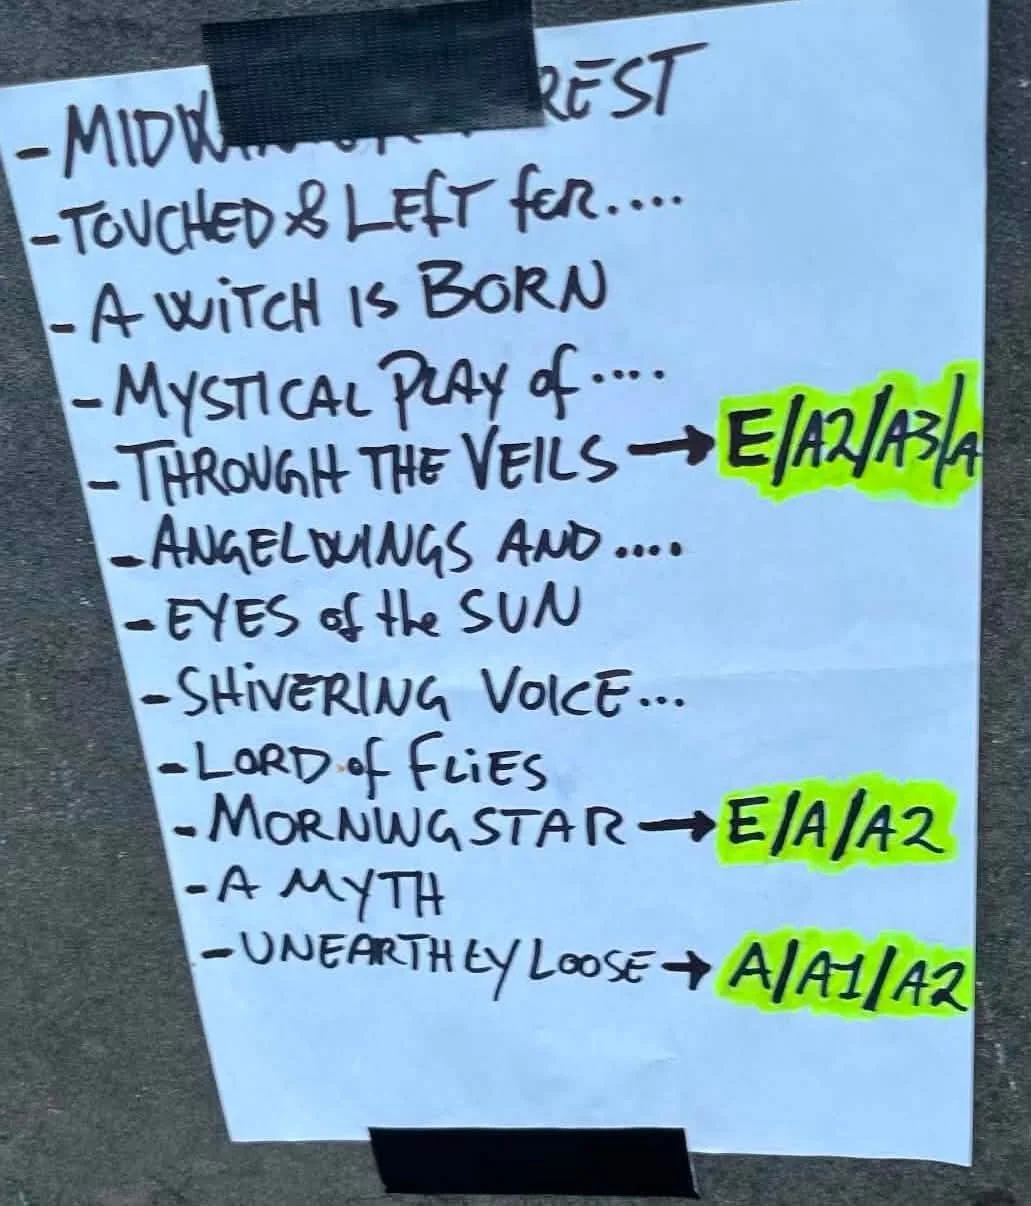 - MIDW REST
- TOUCHED & LEFT foR....
- A WiTCH IS BORN
- MYSTICAL PLAY of....
- THROUGH THE VEILS → E/A2/A3/A
- ANGELWINGS AND ....
- EYES of the SUN
- SHiVERING VOICE...
- LORD of FLiES
- MORNINGSTAR → E/A/A2
- A MYTH
- UNEARTHLY LOOSE → A/A1/A2